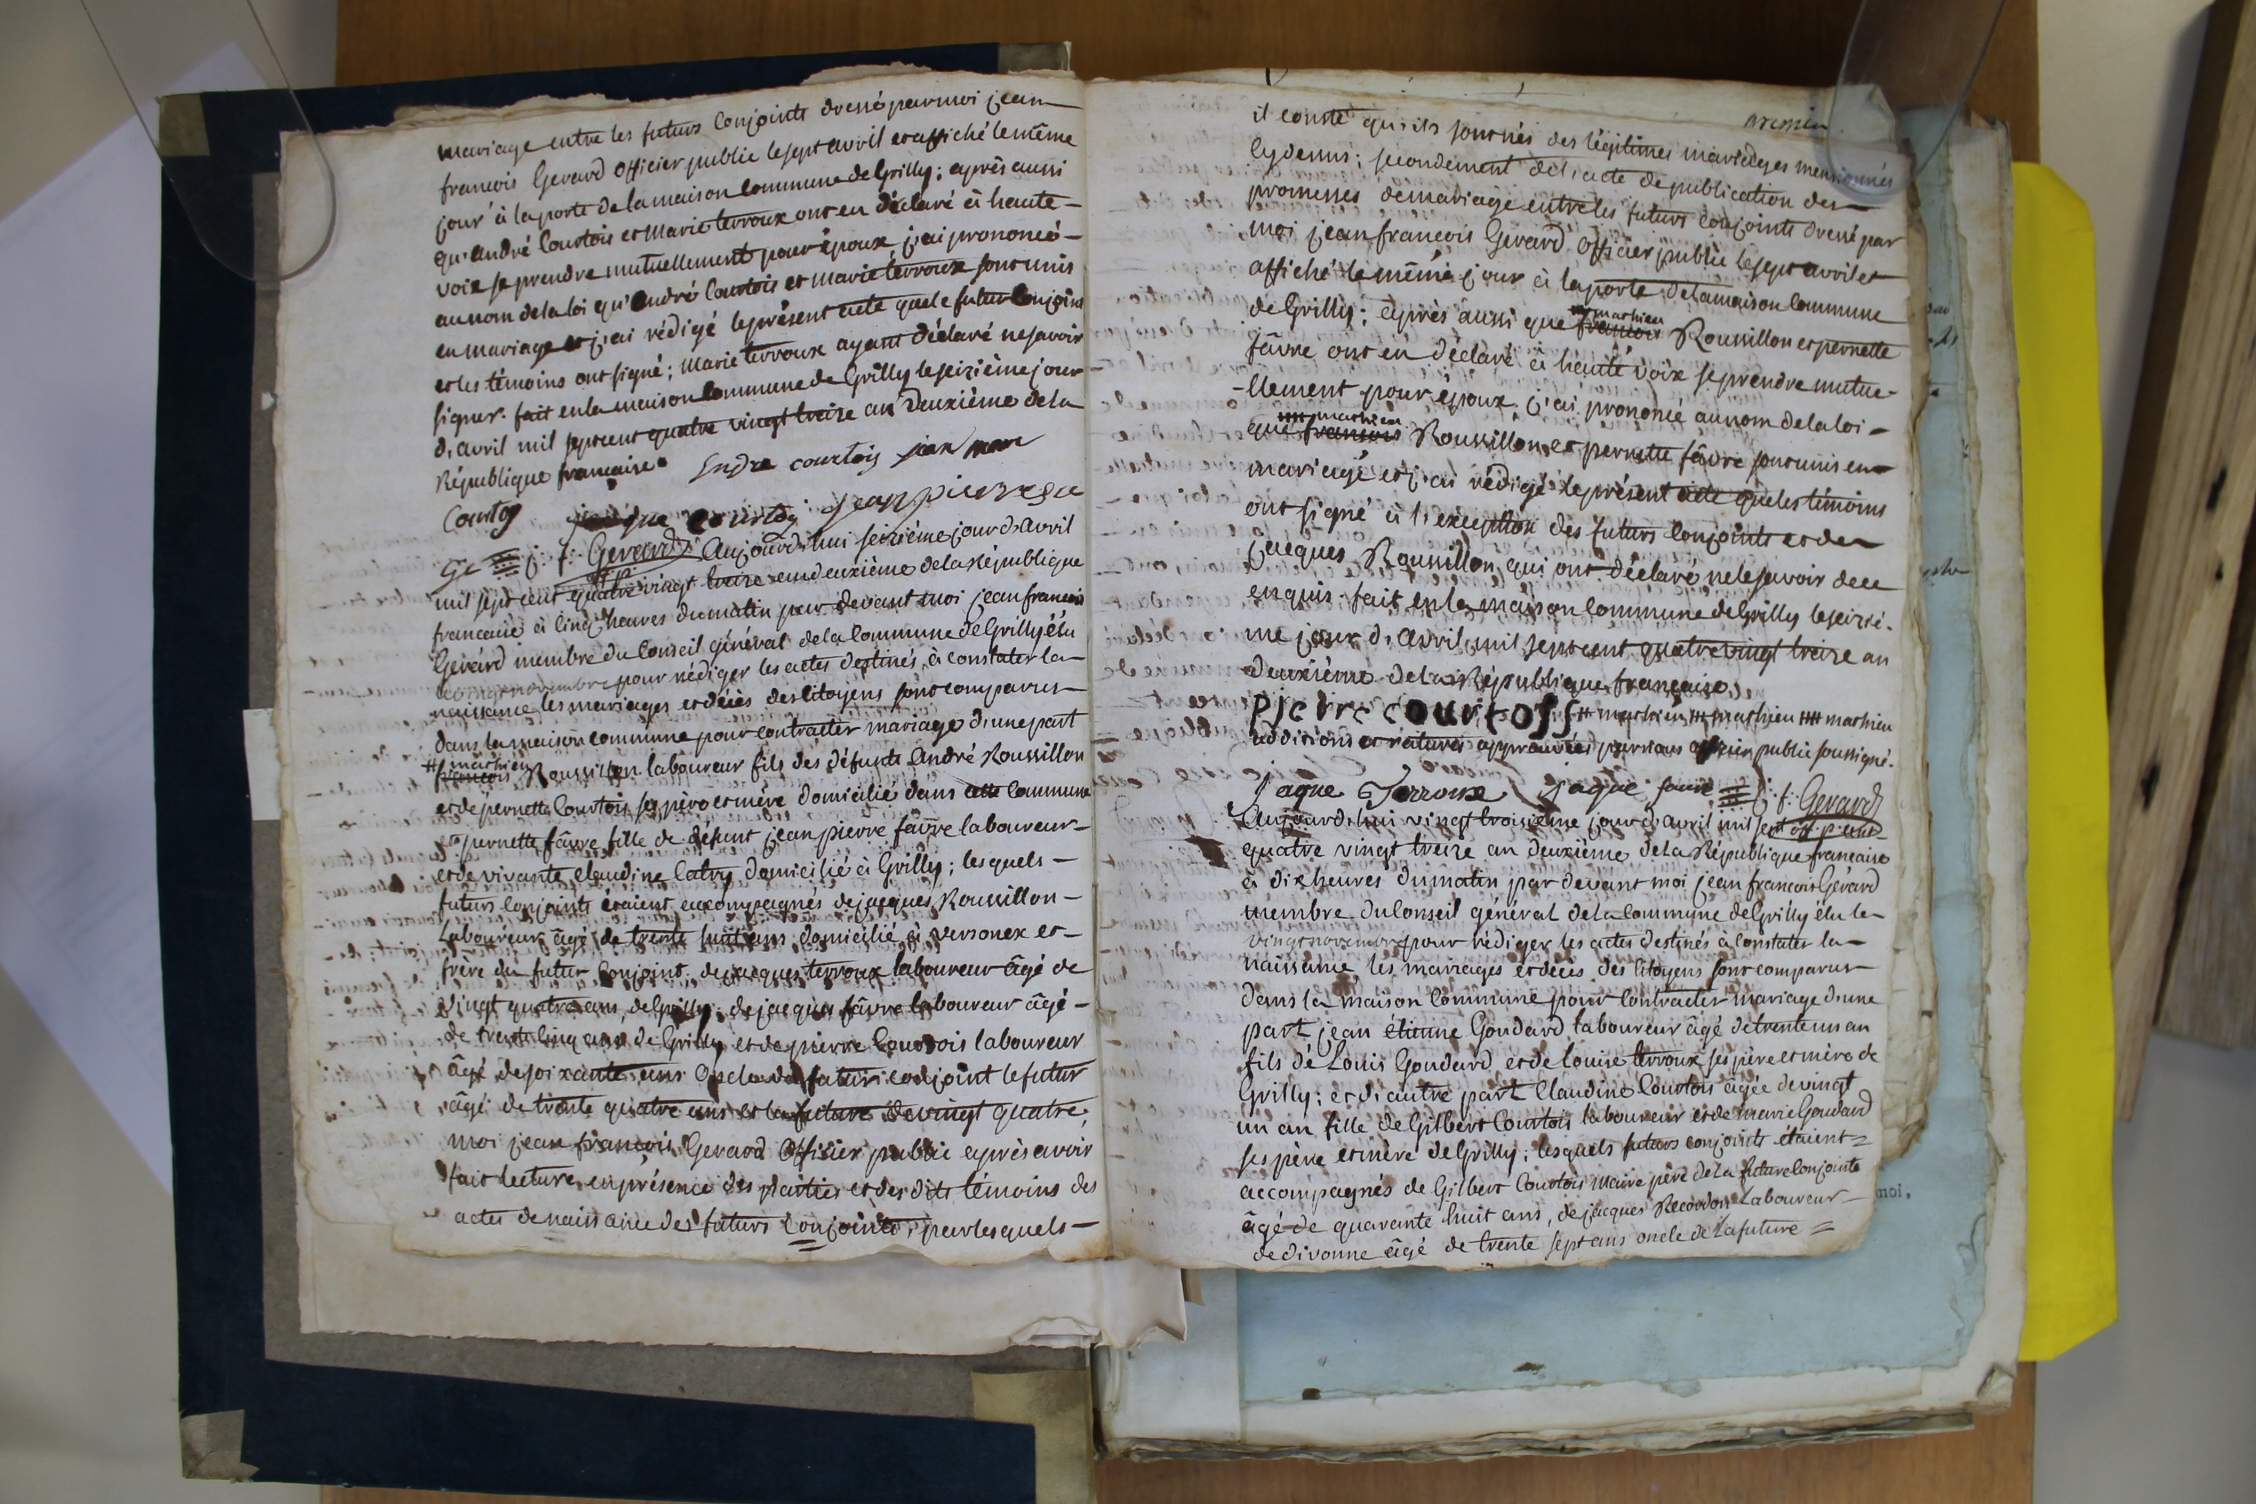 mariage entre les futurs conjoints dressé par moi jean
francois Gerard officier public le sept avril et affiché le même
jour à la porte de la maison commune de Grilly ; après aussi
qu'andré Courtois et Marie terroux ont eu déclaré à haute -
voix se prendre mutuellement pour époux j'ai prononcé -
au nom de la loi qu'andré Courtois et Marie terroux sont unis
en mariage et j'ai rédigé le présent acte que le futur conjoint
et les témoins ont signé ; Marie terroux ayant déclaré ne savoir
signer. fait en la maison commune de Grilly le seizième jour
d'avril mil sept cent quatre vingt treize an deuxième de la
République francaise. Andre courtois jean marc
Courtois jaque courtois jean pierre
j: f: Gerard Aujourd'hui seizième jour d'avril
mil sept cent quatre vingt treize an deuxième de la république
francaise à cinq heures du matin par devant moi jean francois
Gerard membre du Conseil général de la Commune de Grilly élu
le vingt novembre pour rédiger les actes destinés à constater la -
naissance les mariages et décès des citoyens sont comparus -
dans la maison commune pour contracter mariage d'une part
# mathieu
francois Roussillon laboureur fils des défunts André Roussillon
et de pernette Courtois ses père et mère domicilié dans cette Commune
et pernette fâvre fille de défunt jean pierre favre laboureur -
et de vivante claudine Catry domicilié à Grilly ; lesquels -
futurs conjoints étaient accompagnés de jacques Roussillon -
Laboureur âgé de trente huit ans domicilié à versonex et -
frère du futur conjoint de jacques terroux laboureur âgé de
vingt quatre ans, de Grilly ; de jacques fâvre laboureur âgé -
de trente cinq ans de Grilly et de pierre Courtois laboureur
âgé de soixante ans oncle du futur conjoint le futur
âgé de trente quatre ans et la future de vingt quatre,
moi jean francois Gerard Officier public après avoir
fait lecture en présence des parties et des dits témoins des
actes de naissance des futurs conjoints, par lesquels -
il conste qu'ils sont nés des légitimes mariages mensionnés
cy dessus ; secondement de l'acte de publication des -
promesses de mariage entre les futurs conjoints dressé par
moi jean francois Gerard Officier public le sept avril et
affiché le même jour à la porte de la maison commune
de Grilly ; après aussi que francois Roussillon et pernette
mathieu
fâvre ont eu déclaré à haute voix se prendre mutue-
-llement pour époux j'ai prononcé au nom de la loi -
mathieu
que francois Roussillon et pernette fâvre sont unis en
mariage et j'ai rédigé le présent acte que les témoins
ont signé à l'exception des futurs conjoints et de
jacques Roussillon qui ont déclaré ne le savoir de ce
enquis. fait en la maison commune de Grilly le seiziè-
me jour d'avril mil sept cent quatre vingt treize an
deuxième de la République francaise.
pierre courtois # mathieu ## mathieu ### mathieu
additions et ratures approuvées par nous officier public soussigné.
jaque Terroux jaque favre j: f: Gerard
Aujourd'hui vingt troisième jour d'avril mil sept cent
quatre vingt treize an deuxième de la République francaise
à dix heures du matin par devant moi jean francois Gerard
membre du Conseil général de la Commune de Grilly élu le -
vingt novembre pour rédiger les actes destinés à constater la -
naissance les mariages et décès des citoyens sont comparus -
dans la maison commune pour contracter mariage d'une
part jean étienne Goudard laboureur âgé de trente un an
fils de Louis Goudard et de Louise terroux ses père et mère de
Grilly ; et d'autre part Claudine Courtois âgée de vingt
un an fille de Gilbert Courtois laboureur et de marie Goudard
ses père et mère de Grilly ; lesquels futurs conjoints étaient =
accompagnés de Gilbert Courtois maire père de la future conjointe
âgé de quarante huit ans, de jacques Recordon Laboureur -
de divonne âgé de trente sept ans oncle de la future =
moi,